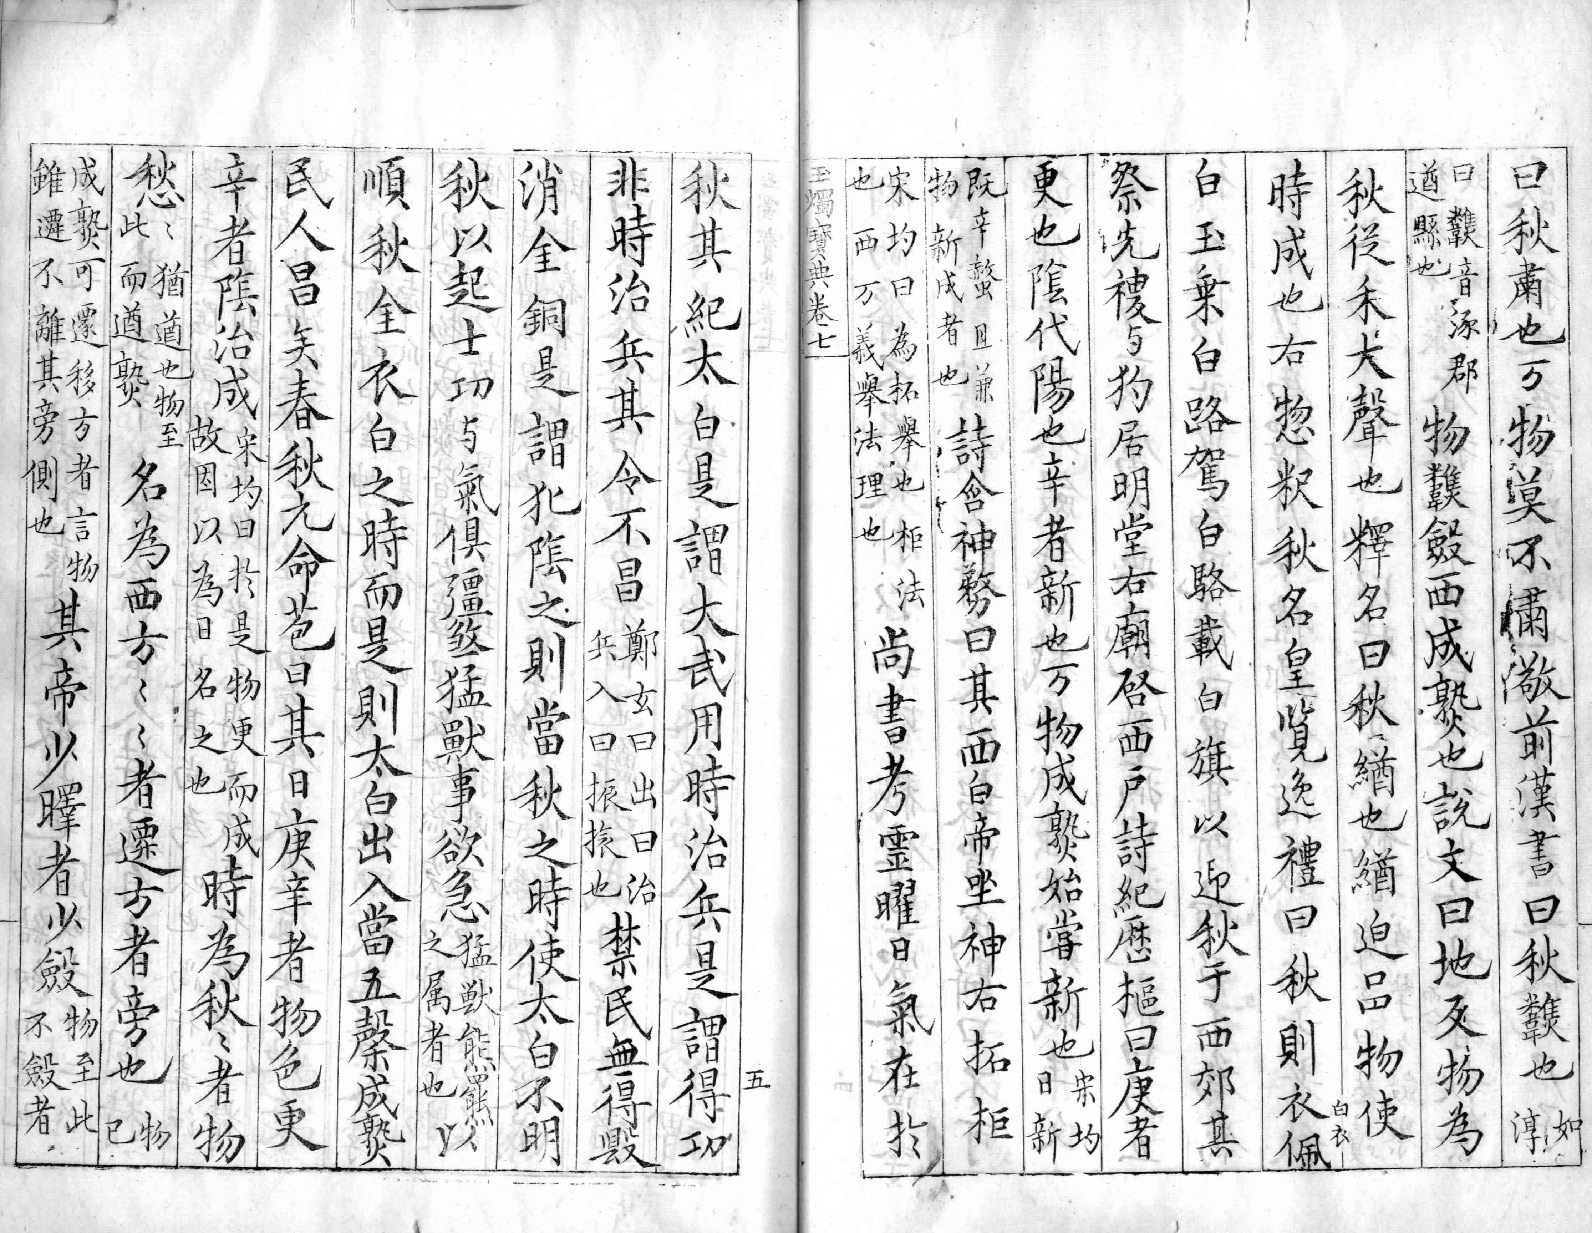 曰秋肅也万物莫不肅敬前漢書曰秋䪜也如淳
曰䪜音涿郡遒縣也物䪜斂西成熟也說文曰地反物為
秋從禾𤈦聲也釋名曰秋〻緧也緧迫品物使
時成也右惣釈秋名皇覽逸禮曰秋則衣白衣佩
白玉乗白路駕白駱載白旗以迎秋于西郊其
祭先禝与狗居明堂右廟啓西戶詩紀歴樞曰庚者
更也陰代陽也辛者新也万物成熟始嘗新也宋均曰新
既辛螫且兼物新成者也詩含神務曰其西白帝坐神右拓柜
宋均曰為拓舉也柜法也西万義舉法理也尚書考霊曜曰氣在於
玉燭寶典卷七
秋其紀太白是謂大武用時治兵是謂得功
非時治兵其令不昌鄭玄曰出曰治兵入曰振旅也禁民無得毀
消金銅是謂犯陰之則當秋之時使太白不明
秋以起士功与氣俱彊煞猛獸事欲急猛獸熊羆之属者也以
順秋金衣白之時而是則太白出入當五榖成熟
民人昌矣春秋元命苞曰其日庚辛者物色更
辛者陰治成宋均曰於是物更而成故因以為日名之也時為秋〻者物
愁〻猶遒也物至此而遒熟名為西方〻〻者遷方者旁也物已
成熟可還移方者言物雖遷不離其旁側也其帝少皞者少斂物至此不斂者
五